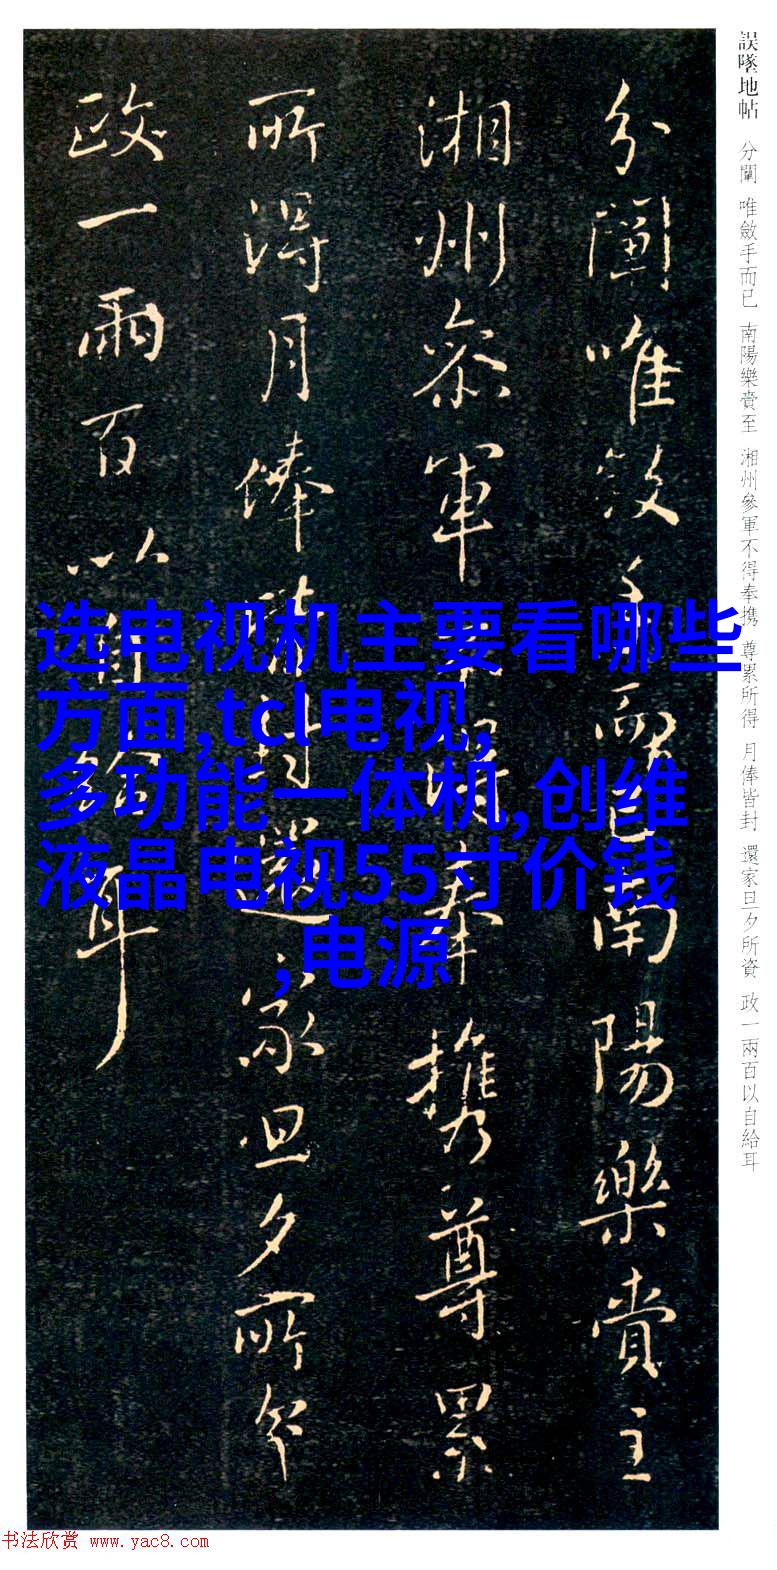 誤墜地帖 分闡 唯斂手而已 南陽樂賚至 湘州參軍不得奉携 尊累所得 月俸皆封 還家旦夕所資 政一兩百以自給耳
分闡唯斂手而已南陽樂賚至
湘州參軍不得奉携尊累
所得月俸皆封還家旦夕所資
政一兩百以自給耳
选电视机主要看哪些
方面,tcl电视,
多功能一体机,创维
液晶电视55寸价钱
,电源
书法欣赏 www.yac8.com